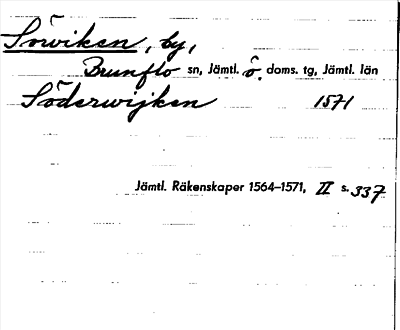 Söwiken, by,
Brunflo sn, Jämtl. ö. doms. tg, Jämtl. län
Söderwijken 1571
Jämtl. Räkenskaper 1564–1571, II s. 337